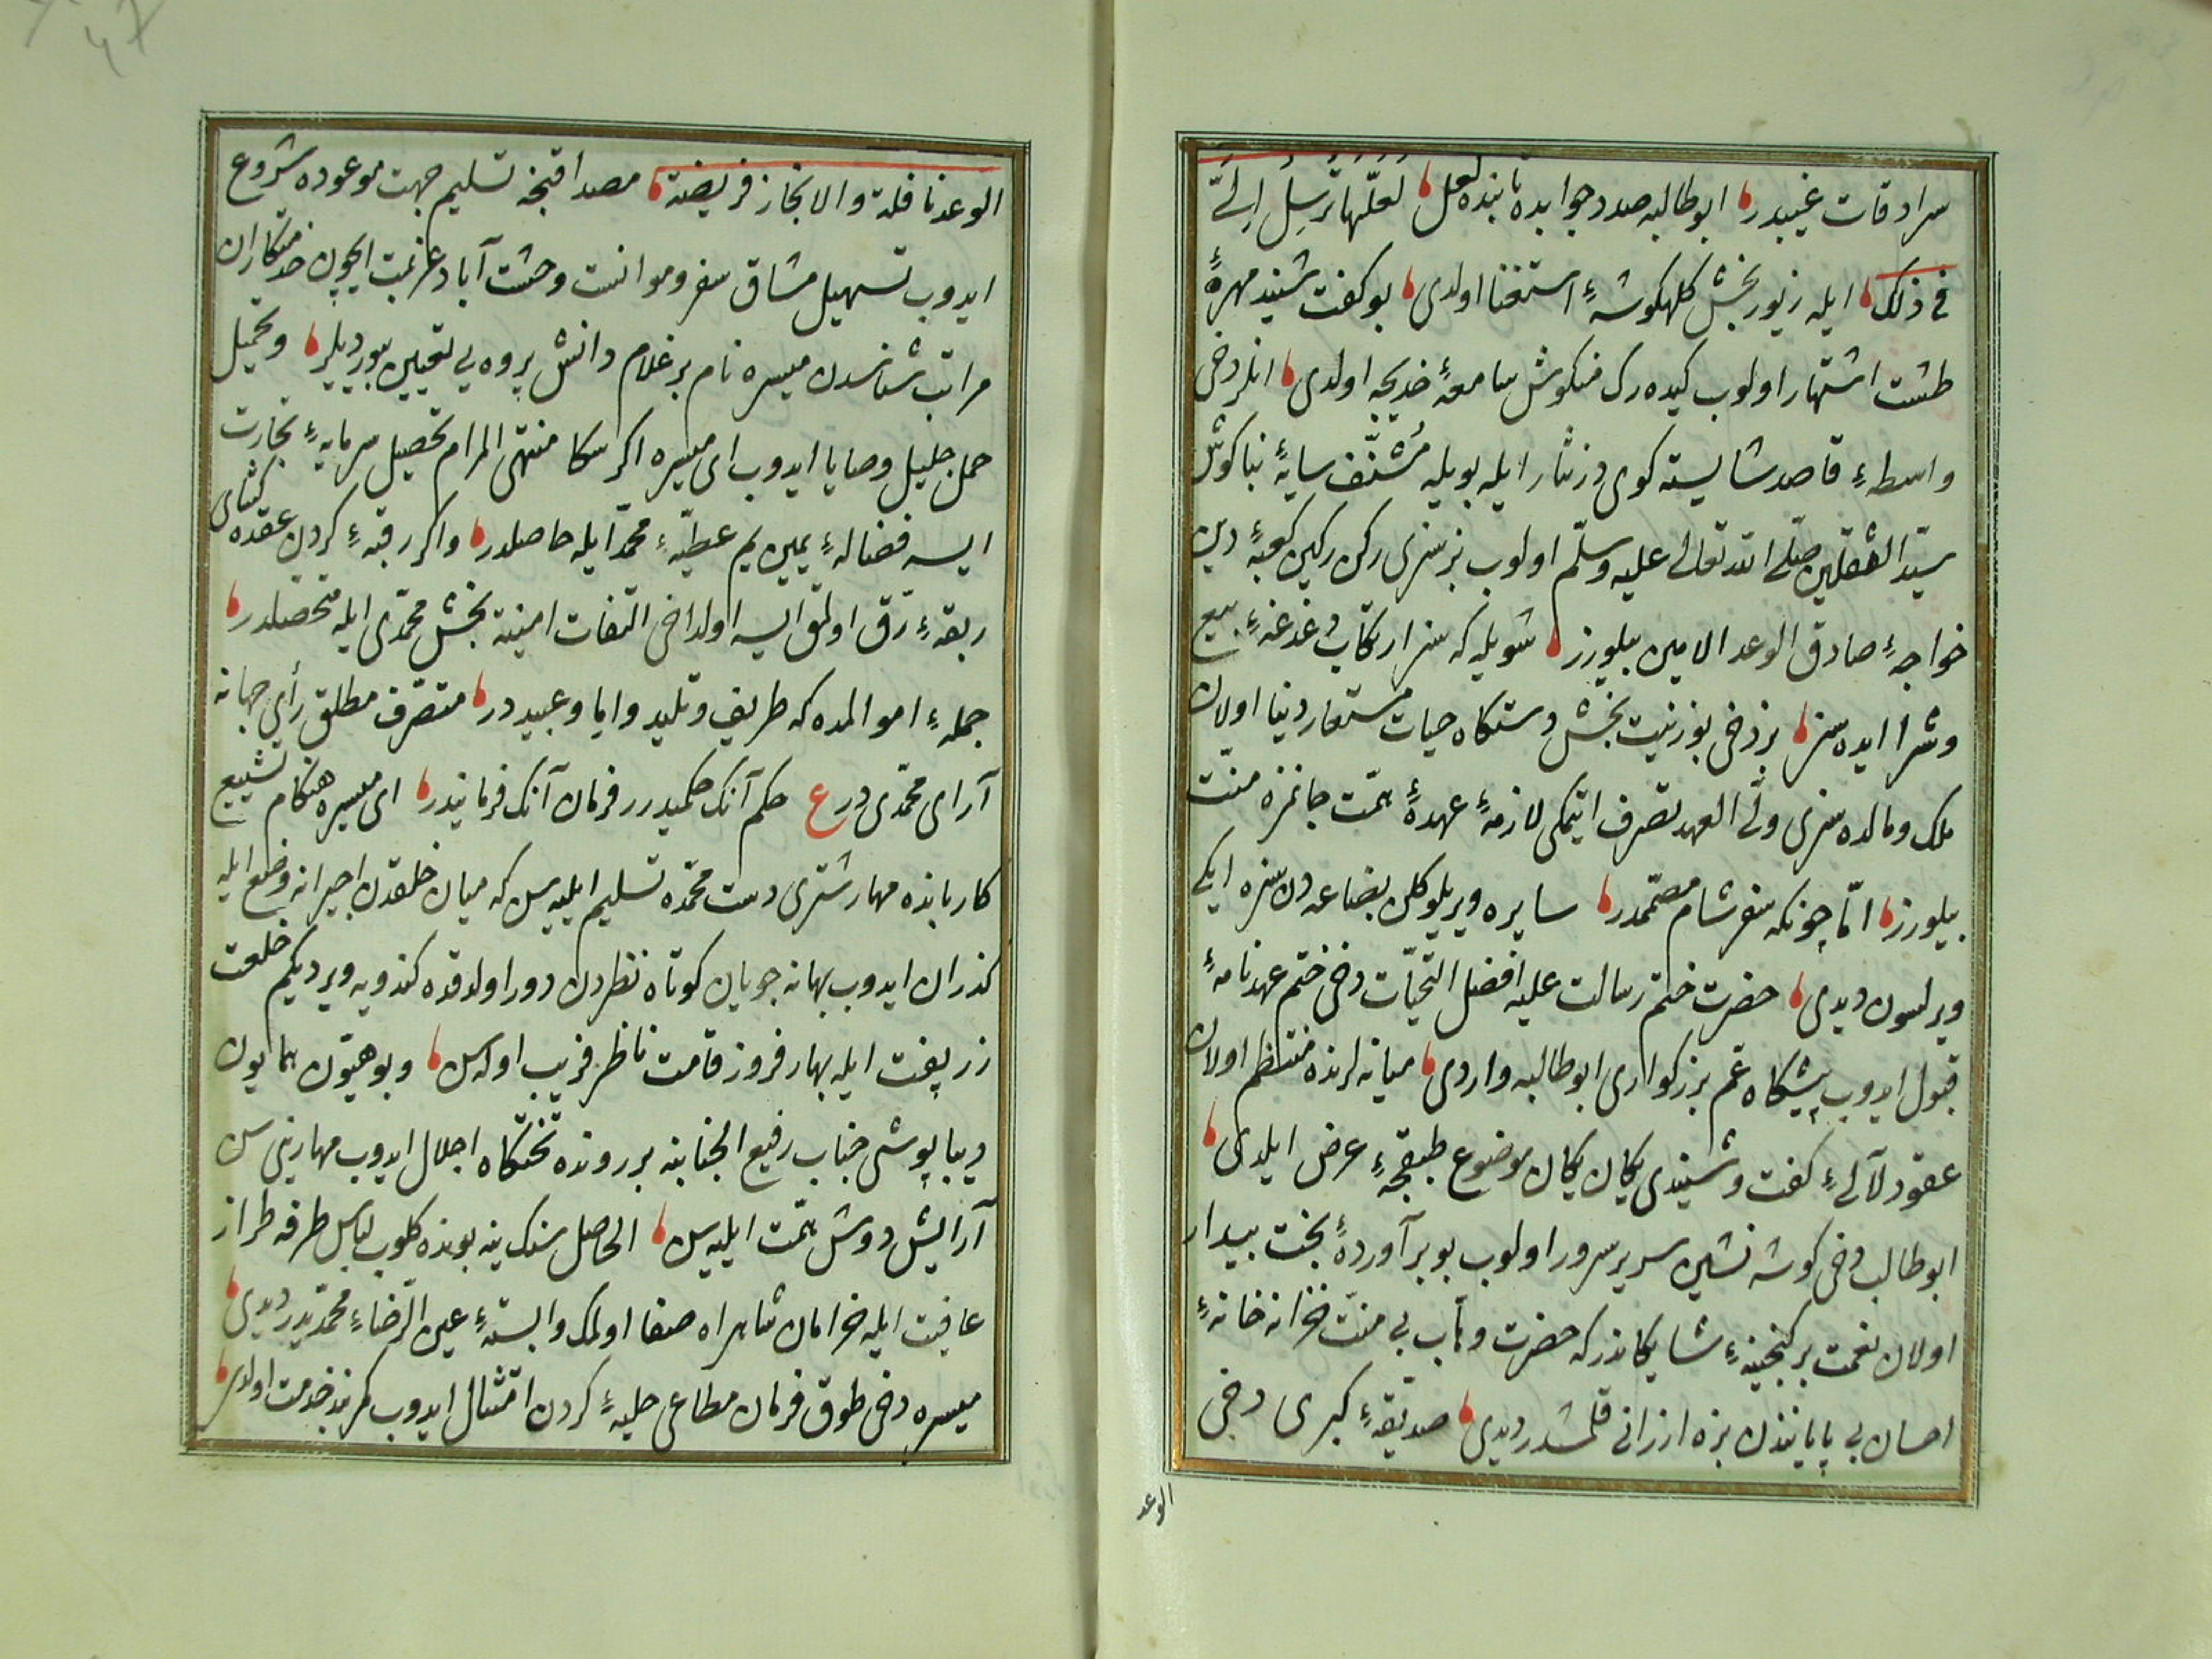 سرادقات غیبدر ابو طالبه صدد جوابده تابنده لعل لعلّها تُرسِلُ اِلَیَّ
فی ذلك ایله زیور بخش کلهکوشهٔ استغنا اولدی بو کفت شنید مهرهٔ
طشت اشتهار اولوب کیده رك منکوش سامعهٔ خدیجه اولدی انلر دخی
واسطهٔ قاصد شایسته کوی درنثار ایله بویله مُشَنِّف سایهٔ بناکوش
سیّد الثقلین صلّی الله تعالی علیه وسلّم اولوب بز سزی رکن رکین کعبهٔ دین
خواجهٔ صادق الوعد الامین بیلورز شویله که سز ارتکاب دغدغهٔ بیع
وشرا ایده سز بز دخی بو زینت بخش دستکاه حیات مستعار دنیا اولان
ملك ومالده سزی ولیّ العهد تصرف ایتمکی لازمهٔ عهدهٔ همّت جانمزه منّت
بیلورز امّا چونکه سفر شام مصمّمدر سایره ویریلوکلن بضاعه دن سزه ایکی
ویرلسون دیدی حضرت ختم رسالت علیه افضل التحیّات دخی ختم عهدنامهٔ
قبول ایدوب پیشکاه عم بزرکواری ابو طالبه واردی میانه لرنده منتظم اولان
عقود لآلیٔ کفت وشنیدی یکان یکان موضوع طبقچهٔ عرض ایلدی
ابو طالب دخی کوشه نشین سریر سرور اولوب بو بر آوردهٔ بخت بیدار
اولان نعمت بر کنجینهٔ شایکاندر که حضرت وهّاب بی منّت خزانه خانهٔ
احسان بی پایانندن بزه ارزانی قلمشدر دیدی صدّیقهٔ کبری دخی
الوعد
الوعد نافلة والانجاز فریضة مصداقنجه تسلیم جهت موعوده شروع
ایدوب تسهیل مشاق سفر وموانست وحشت آباد غربت ایچون خدمتکاران
مراتب شناسدن میسره نام بر غلام دانش پروه یی تعیین بیوردیلر وتحمیل
حمل جلیل وصایا ایدوب ای میسره اکر سکا منتهی المرام تحصیل سرمایهٔ تجارت
ایسه فضالهٔ یمین یم عطیّهٔ محمّد ایله حاصلدر واکر رقبهٔ کردن عقده کشای
ربقهٔ رقّ اولمق ایسه اولداخی التفات امنیت بخش محمّدی ایله متحصّلدر
جملهٔ اموالمده که طریف وتلید واما وعبیددر متصرّف مطلق رأی جهان
آرای محمّدی در ع حکم آنك حکمیدر فرمان آنك فرمانیدر ای میسره هنکام تشییع
کاربانده مهار شتری دست محمّده تسلیم ایلیه سن که میان خلقدن اجیرانه وضع ایله
کذران ایدوب بهانه جویان کوتاه نظردن دور اولدقده کندویه ویردیکم خلعت
زر بفت ایله بهار فروز قامت ناظر فریب اوله سن وبو هیّون همایون
دیبا پوشی جناب رفیع الجنابنه بر رونده تختکاه اجلال ایدوب مهارینی سن
آرایش دوش همّت ایلیه سن الحاصل سنك ینه بونده کلوب لباس طرفه طراز
عافیت ایله خرامان شاهراه صفا اولمك وابستهٔ عین الرّضاء محمّدیدر دیدی
میسره دخی طوق فرمان مطاعی حلیهٔ کردن امتثال ایدوب کمربند خدمت اولدی